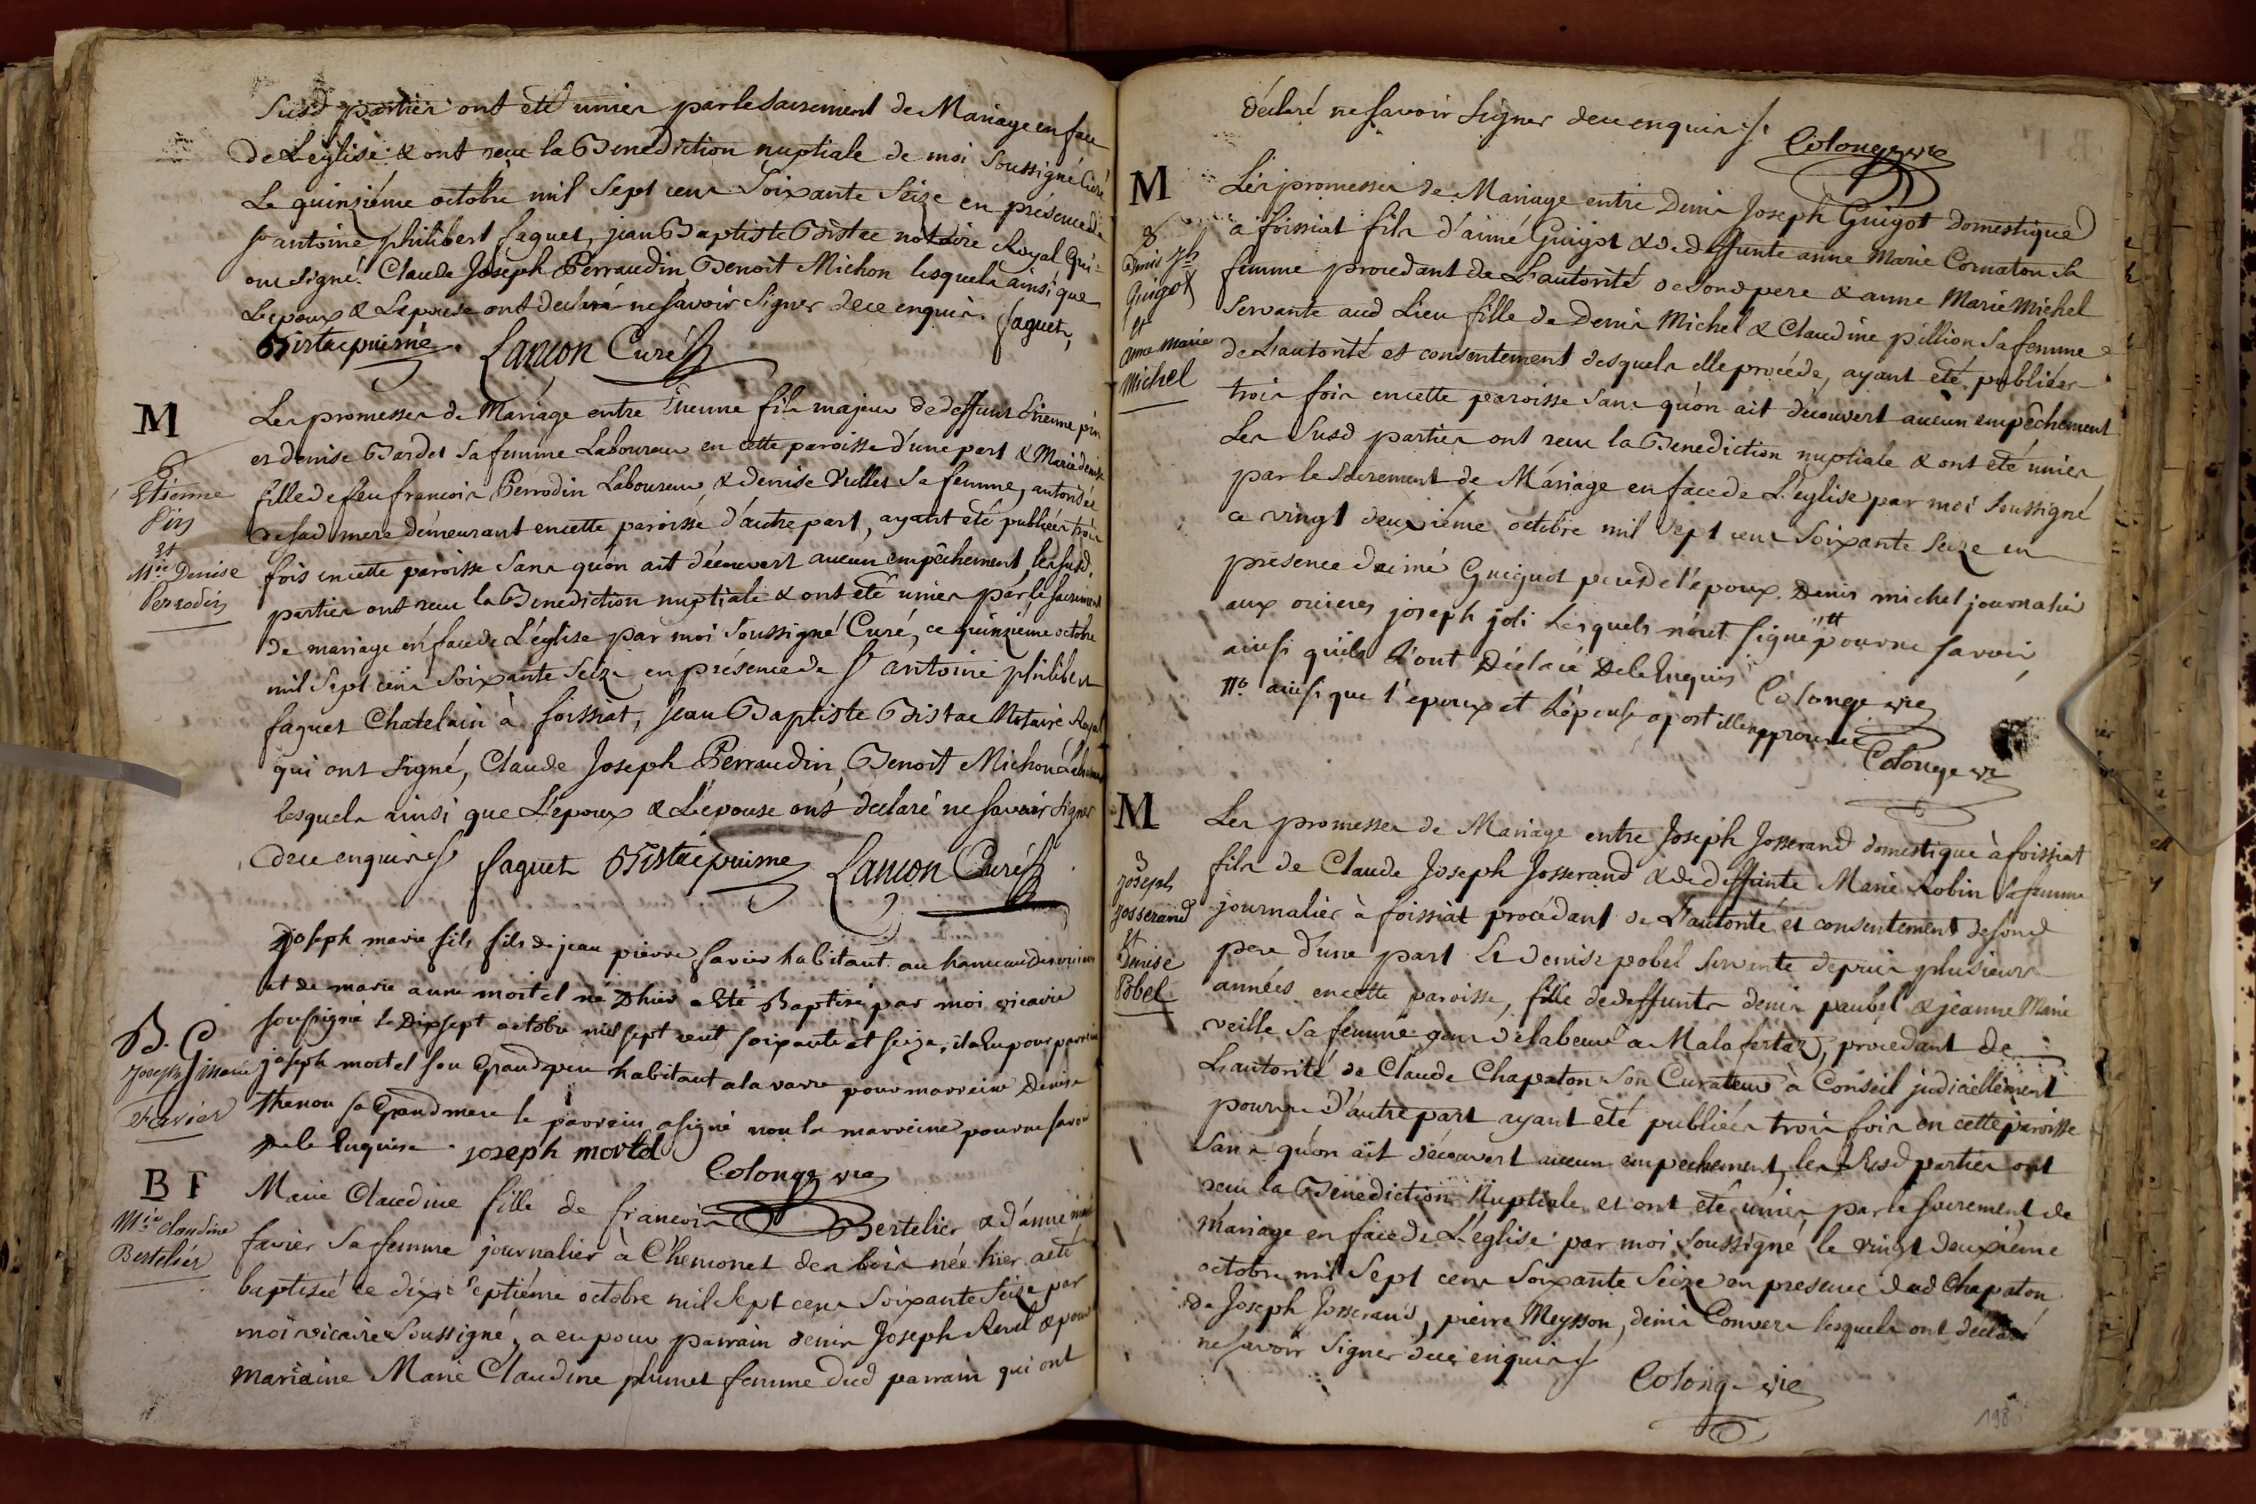 Susd parties ont été unies par le Sacrement de Mariage en face
de L'église & ont reçu la Benediction nuptiale de moi Soussigné Curé
Le quinziéme octobre mil Sept cens Soixante Seize en présence de
Sr antoine philibert faguet, jean Baptiste Bistac notaire Royal qui
ont signé. Claude Joseph Perraudin Benoit Michon lesquels ainsi que
L'epoux & L'epouse ont declaré ne savoir signer de ce enquis. faguet,
Bistac puisné. Lançon Curé
M
Etienne
Pin
et
Mie Denise
Perrodin
Les promesses de Mariage entre Etienne fils majeur de deffunt Etienne pin
et denise Bardet sa femme Laboureur en cette paroisse d'une part & Marie denise
fille de feu françois Perrodin Laboureur & denise Vullet Sa femme, autorisée
de sad mere demeurant en cette paroisse d'autre part, ayant été publiées trois
fois en cette paroisse Sans qu'on ait découvert aucun empêchement, les susd.
parties ont reçu la Benediction nuptiale & ont été unies par le Sacrement
de mariage en face de L'église par moi Soussigné Curé, ce quinziéme octobre
mil Sept cens Soixante Seize en présence de Sr antoine philibert
faguet Chatelain à foissiat, Jean Baptiste Bistac Notaire Royal
qui ont signé, Claude Joseph Perraudin, Benoit Michon
lesquels ainsi que L'époux & L'épouse ont declaré ne savoir signer
de ce enquis faguet Bistac puisne Lançon Curé
B. G
Joseph marie
favier
Joseph marie fils fils de jean pierre favier habitant au hameau des
et de marie anne mortel né Dhier a Eté Baptisé par moi vicaire
soussigné Le Dixsept octobre mil sept cent soixante et seize, il a Eu pour parrein
joseph mortel son Grand pere habitant a la varre pour marreine Denise
thenon sa Grand mere le parrein a signé non la marreine pour ne savoir
De le Enquise. joseph mortel Colonge vic
B F
Mie claudine
Bertelier
Marie Claudine fille de françois Bertelier & d'anne marie
favier Sa femme journalier à Chemonet des bois née hier a été
baptisée ce dix septiéme octobre mil Sept cens Soixante Seize par
moi vicaire Soussigné, a eu pour parrain denis Joseph Revel & pour
marraine Marie Claudine plumet femme dud parrain qui ont
déclaré ne Savoir Signer de ce enquis Colonge vic
M
Denis Jh
Guigot
et
anne marie
Michel
Les promesses de Mariage entre Denis Joseph Guigot Domestique
à foissiat fils d'aimé Guigot & de deffunte anne Marie Cornaton Sa
femme procedant de L'autorité de Sond pere & anne Marie Michel
Servante aud Lieu fille de Denis Michel & Claudine pillion Sa femme
de L'autorité et consentement desquels elle procéde, ayant été publiées
trois fois en cette paroisse Sans qu'on ait découvert aucun empêchement
Les Susd parties ont reçu la Benediction nuptiale & ont été unies
par le Sacrement de Mariage en face de L'église par moi Soussigné
ce vingt deuxiéme octobre mil Sept cens Soixante Seize en
présence d'aimé Guiguot pere de l'époux. Denis michel journalier
aux orieres joseph joli Lesquels n'ont signé pour ne savoir
ainsi qu'ils L'ont Déclaré De le Enquis Colonge vic
ainsi que l'epoux et L'épouse apostille approuvée
Colonge vic
M
Joseph
Josserand
et
Denise
Pobel
Les promesses de Mariage entre Joseph Josserand domestique à foissiat
fils de Claude Joseph Josserand & de deffunte Marie Robin Sa femme
journalier à foissiat procédant de L'autorité et consentement de sond
pere d'une part Et denise pobel Servante depuis plusieurs
années en cette paroisse, fille de deffunts denis paubel & jeanne Marie
veille sa femme gens de labeur a Malafertaz, procedant de
L'autorité de Claude Chapaton Son Curateur à Conseil judiciellement
pourvu d'autre part ayant été publiées trois fois en cette paroisse
Sans qu'on ait découvert aucun empechement, les Susd parties ont
reçu la Benediction Nuptiale et ont été unies par le Sacrement de
mariage en face de L'église par moi Soussigné le vingt deuxiéme
octobre mil Sept cens Soixante Seize en presence dud Chapaton
de Joseph Josserand, pierre Meysson, denis Convers lesquels ont declaré
ne Savoir Signer de ce enquis
Colonge vic
198